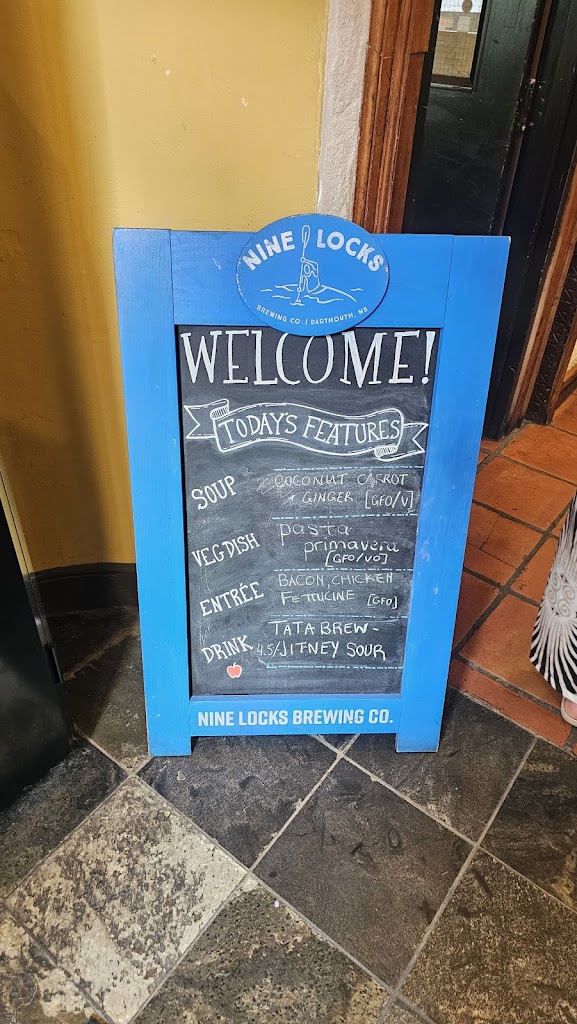 NINE LOCKS
BREWING CO. | DARTMOUTH, NS
WELCOME!
TODAY'S FEATURES
SOUP
COCONUT CARROT
+ GINGER [GFO/V]
VEG DISH
pasta
primavera
[GFO/VO]
ENTRÉE
BACON, CHICKEN
FETTUCINE [GFO]
DRINK
TATA BREW -
4.5/JITNEY SOUR
NINE LOCKS BREWING CO.